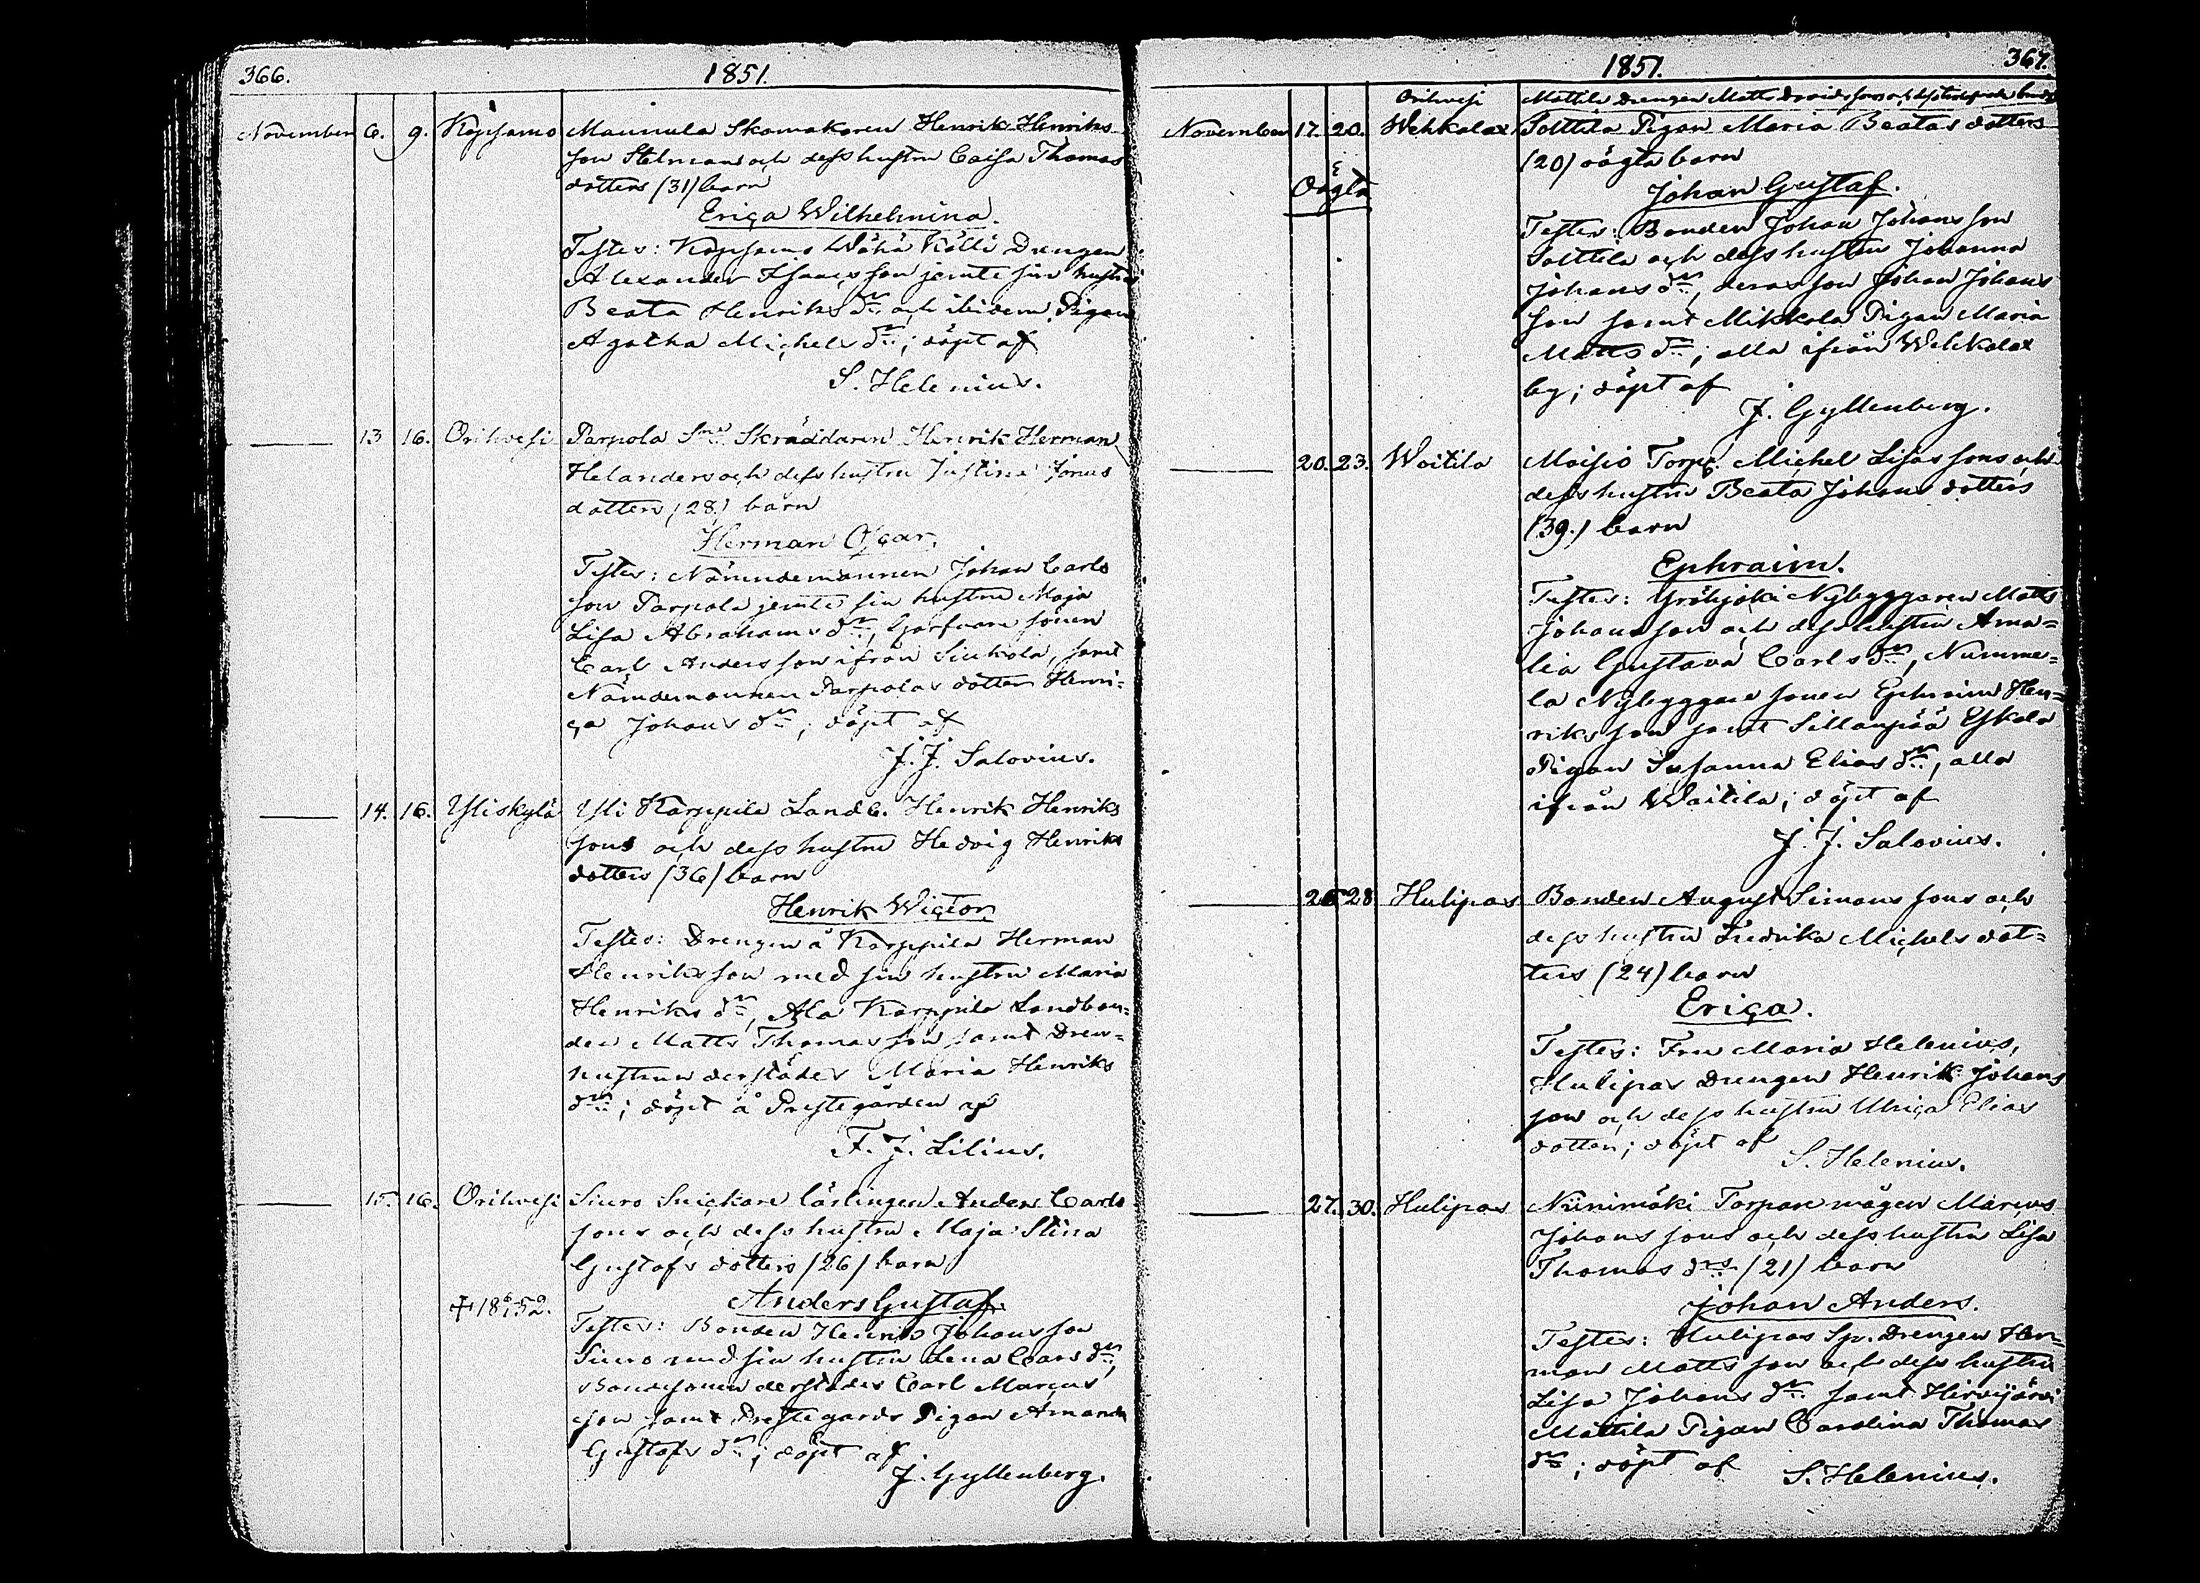 366.
1851.
November 6. 9. Kopsamo Maunula Skomakaren Henrik Henriks
son Stelman och dess hustru Caisa Thomas
dotters (31) barn
Erica Wilhelmina.
Testes: Kopsamo Wähä Källi Drengen
Alexander Isaacsson jemte sin hustru
Beata Henriks dr och ibidem Pigan
Agatha Michels dr; döpt af
S. Helenius.
13 16. Orihvesi Parpola Skräddaren Henrik Herman
Helanders och dess hustru Justina Jonas
dotters (28.) barn
Herman Oscar.
Testes: Nämndemannen Johan Carls
son Parpola jemte sin hustru Maja
Lisa Abrahams dr, Garfvare sonen
Carl Andersson ifrån Siukola, samt
Nämdemannen Parpolas dotter Henri=
ca Johans dr; döpt af
J. J. Salovius.
14. 16. Yliskylä Yli Karppila Landb. Henrik Henriks
sons och dess hustru Hedvig Henriks
dotters (36) barn
Henrik Wictor
Testes: Drengen å Karppila Herman
Henriksson med sin hustru Maria
Henriks dr, Ala Karppila Landbon=
den Matts Thomasson samt Dren=
hustrun derstädes Maria Henriks
dr; döpt å Prestegården af
F. J. Lilius.
15. 16. Orihvesi Siuro Snickare lärlingen Anders Carls
sons och dess hustru Maja Stina
Gustafs dotters (26) barn
Anders Gustaf.
Testes: Bonden Henrik Johansson
Siuro med sin hustru Lena Caars dr,
Bondesonen derstädes Carl Marcus
son samt Prestegårds Pigan Amanda
Gustafs dr; döpt af
J. Gyllenberg.
1851.
367.
Orihvesi Mattila Drengen Matts Davidssons och
November 17. 20. Wehkalax Solttila Pigan Maria Beatas dotters
(20) oägta barn
Oägta
Johan Gustaf.
Testes: Bonden Johan Johansson
Solttila och dess hustru Johanna
Johans dr, deras son Johan Johans
son samt Mikkola Pigan Maria
Matts dr; alla ifrån Wehkalax
by; döpt af
J. Gyllenberg.
20. 23. Woitila Moisio Torp. Michel Lisas sons och
dess hustru Beata Johans dotters
(39.) barn
Ephraim.
Testes: Yröhjoki Nybyggaren Matts
Johansson och dess hustru Ama=
lia Gustava Carls dr, Numme=
la Nybyggare sonen Ephraim Hen=
riksson samt Sillanpää Eskola
Pigan Susanna Elias dr, alla
ifrån Woitila; döpt af
J. J. Salovius.
26 28 Hulipas Bonden August Simons sons och
dess hustru Fredrika Michels dot=
ters (24) barn
Erica.
Testes: Fru Maria Helenius,
Hulipas Drengen Henrik Johans
son och dess hustru Ulrica Elias
dotter; döpt af
S. Helenius.
27. 30. Hulipas Niinimäki Torpare mågen Marcus
Johans sons och dess hustru Lisa
Thomas drs (21) barn
Johan Anders.
Testes: Hulipas Sp. Drengen Her=
man Mattsson och dess hustru
Lisa Johans dr samt Hirvijärvi
Mattila Pigan Carolina Thomas
dr; döpt af
S. Helenius.